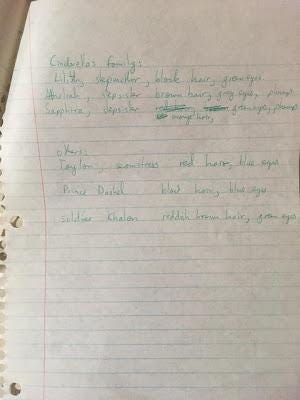 Cindrella's family:
Lilith, stepmother, blonde hair, green eyes
stepsister brown hair, grey eyes, plump
Sapphira, stepsister green eyes, plump
orange hair,
others:
Taylon, seamstress red hair, blue eyes
Prince blond hair, blue eyes
soldier Khalon reddish brown hair, green eyes